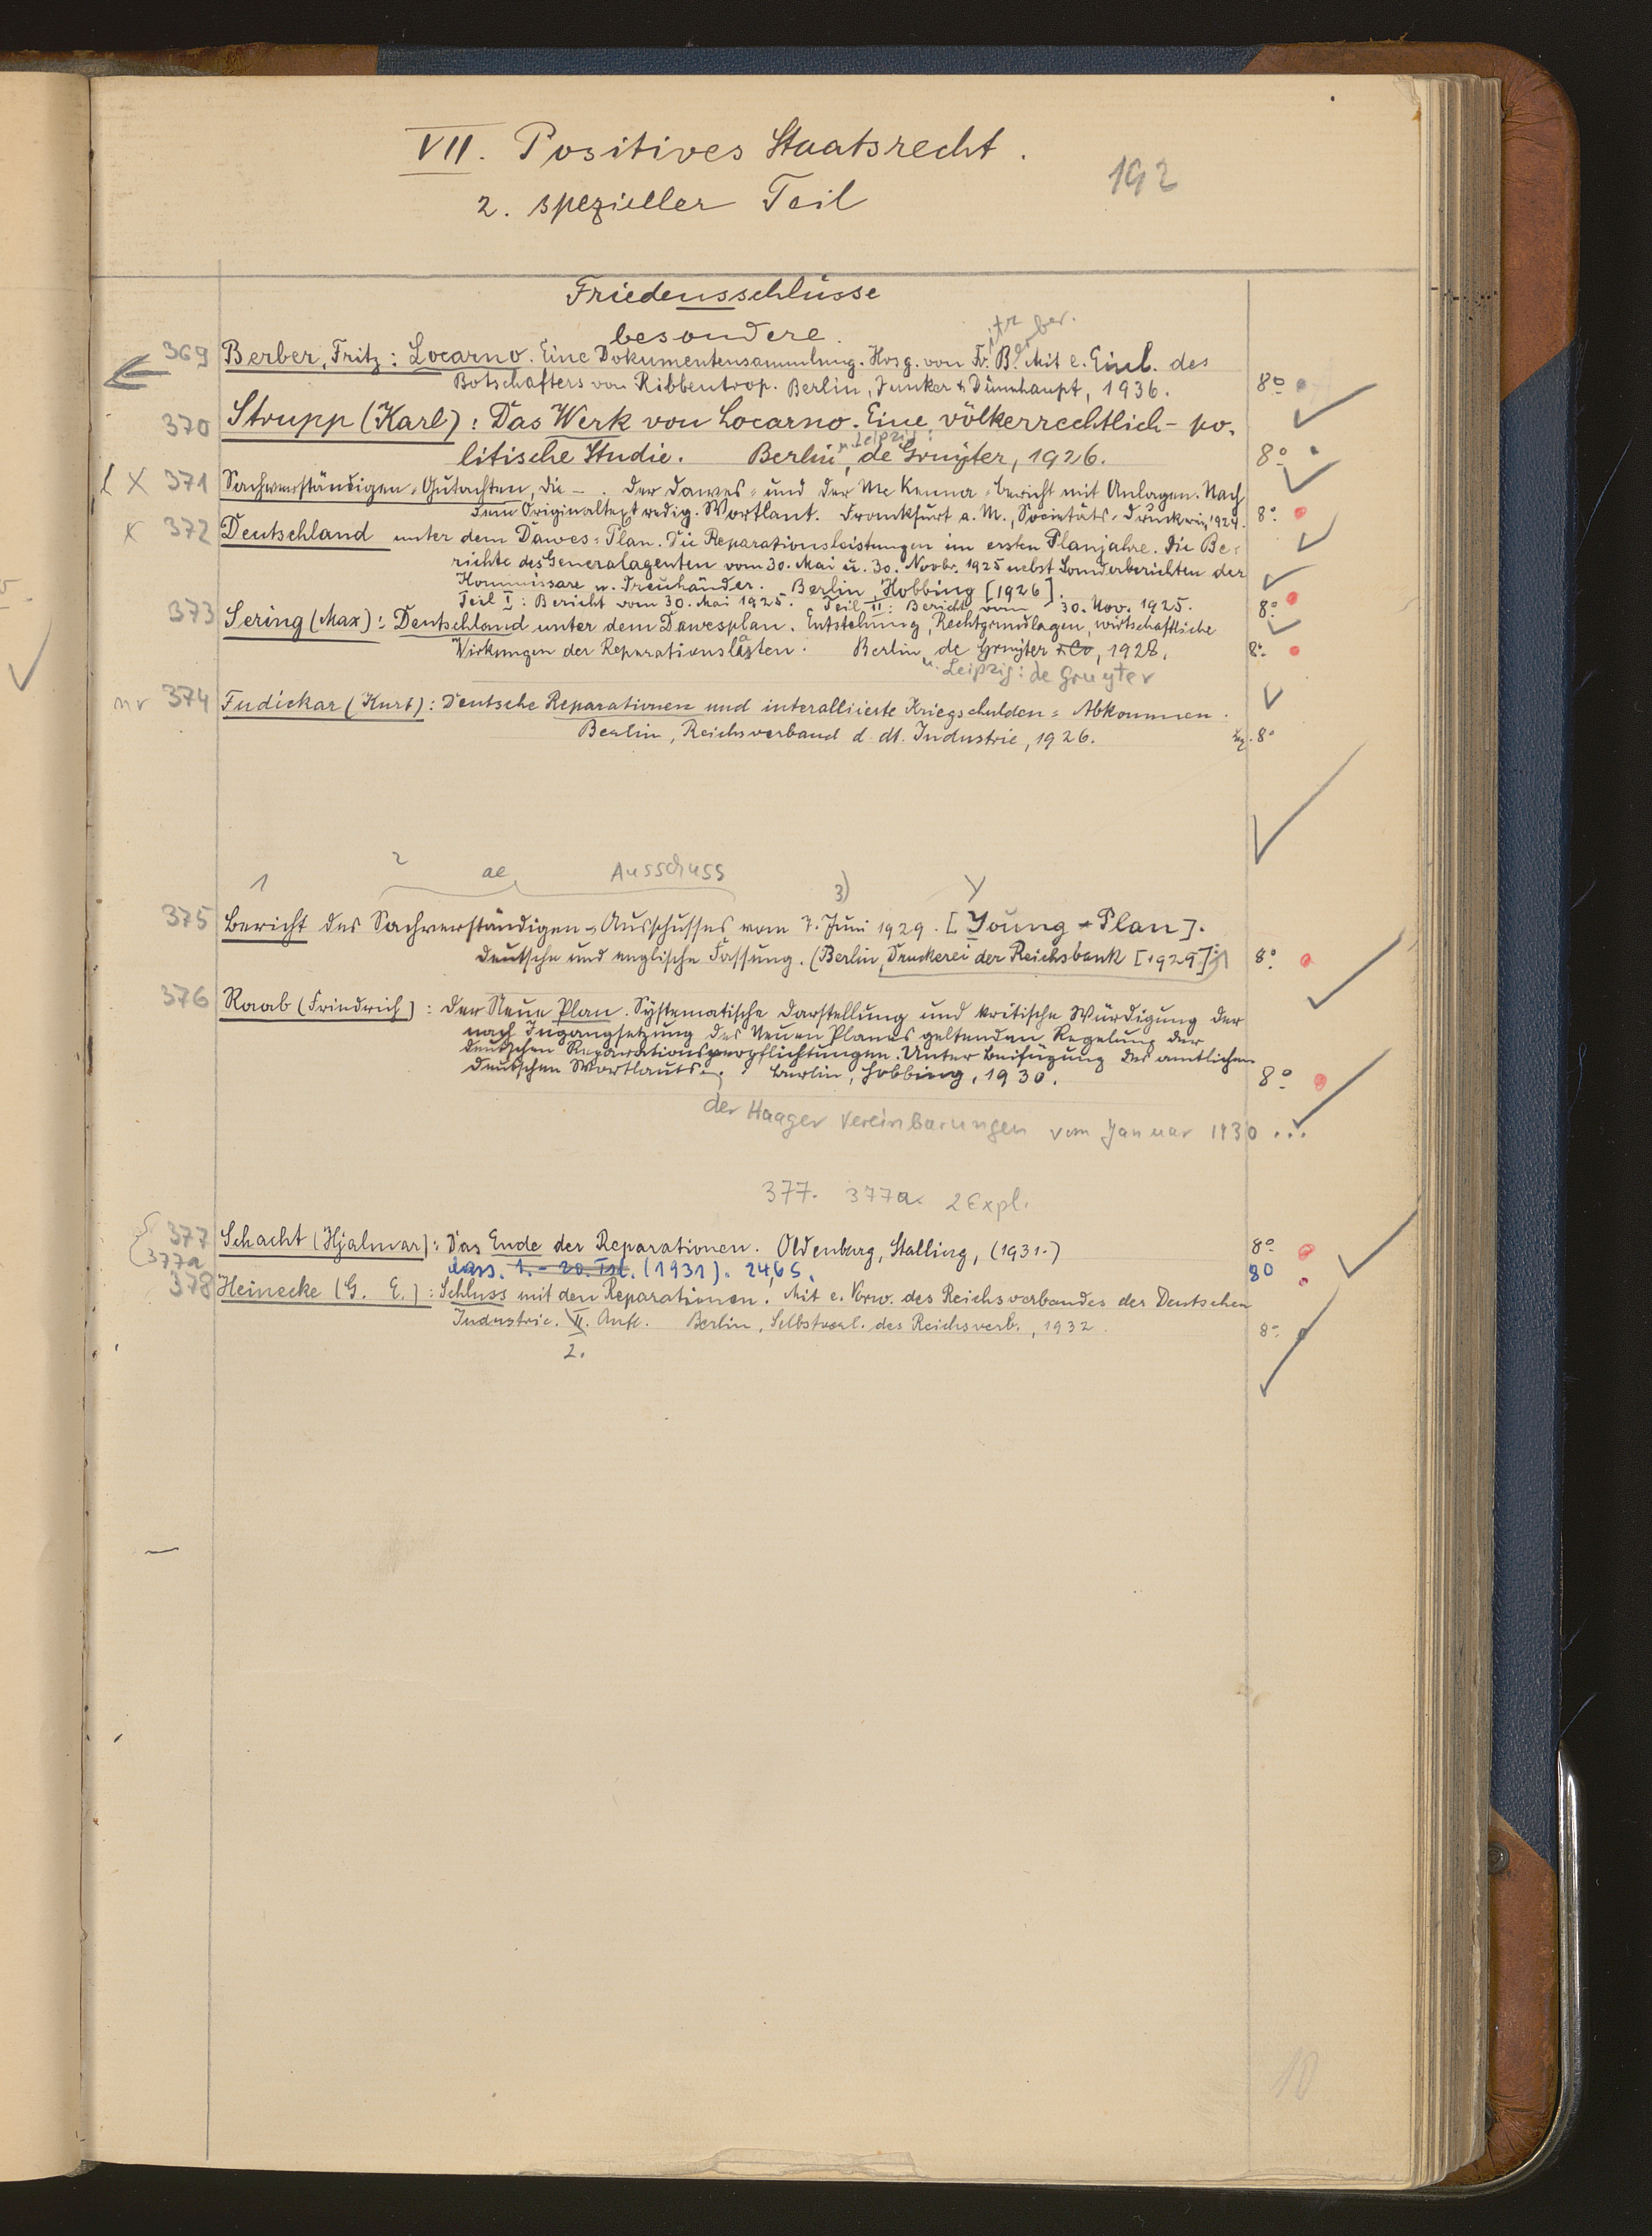 VII. Positives Staatsrecht.
192
2. spezieller Teil
Friedensschlüsse
besondere.
itz erber.
369 Berber, Fritz: Locarno. Eine Dokumentensammlung. Hrsg. von Fr. B. Mit e. Einl. des
Botschafters von Ribbentrop. Berlin, Junker & Dünnhaupt, 1936. 8°
370 Strupp (Karl): Das Werk von Locarno. Eine völkerrechtlich-po-
u. Leipzig:
litische Studie. Berlin, de Gruyter, 1926. 8°
X 371 Sachverständigen-Gutachten, die –. Der Dawes- und der Mc Kenna-Bericht mit Anlagen. Nach
dem Originaltext redig. Wortlaut. Frankfurt a. M., Societäts-Druckerei, 1924. 8°
x 372 Deutschland unter dem Dawes-Plan. Die Reparationsleistungen im ersten Planjahre. Die Be-
richte des Generalagenten vom 30. Mai u. 30. Novbr. 1925 nebst Sonderberichten der
Kommissare u. Treuhänder. Berlin, Hobbing [1926].
Teil I: Bericht vom 30. Mai 1925. Teil II: Bericht vom 30. Nov. 1925. 8°
373 Sering (Max): Deutschland unter dem Dawesplan. Entstehung, Rechtgrundlagen, wirtschaftliche
Wirkungen der Reparationslasten. Berlin, de Gruyter & Co, 1928. 8°
u. Leipzig: de Gruyter
nr 374 Fudickar (Kurt): Deutsche Reparationen und interalliierte Kriegschulden-Abkommen.
Berlin, Reichsverband d. dt. Industrie, 1926. 8°
1 2 ae Ausschuss 3) Y
375 Bericht des Sachverständigen-Ausschusses vom 7. Juni 1929. [Young-Plan].
Deutsche und englische Fassung. (Berlin, Druckerei der Reichsbank [1929]) 8°
376 Raab (Friedrich): Der Neue Plan. Systematische Darstellung und kritische Würdigung der
nach Ingangsetzung des Neuen Planes geltenden Regelung der
deutschen Reparationsverpflichtungen. Unter Beifügung des amtlichen
deutschen Wortlauts. Berlin, Hobbing, 1930. 8°
der Haager Vereinbarungen vom Januar 1930 ...
377. 377a. 2 Expl.
377 Schacht (Hjalmar): Das Ende der Reparationen. Oldenburg, Stalling, (1931.) 8°
377a dass. 1.-20. Tsd. (1931). 246 S. 80
378 Heinecke (G. E.): Schluss mit den Reparationen. Mit e. Vorw. des Reichsverbandes der Deutschen
Industrie. II. Aufl. Berlin, Selbstverl. des Reichsverb., 1932. 8°
2.
10